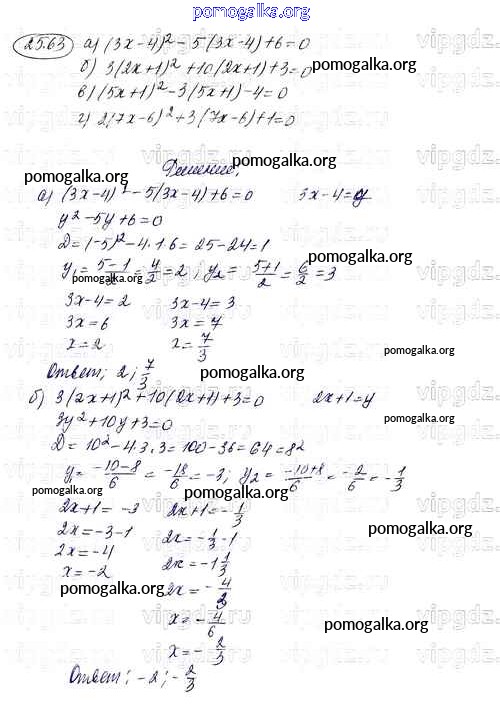 pomogalka.org
25.63 а) (3x-4)² - 5(3x-4)+6=0
б) 3(2x+1)² + 10(2x+1)+3=0
pomogalka.org
в) (5x+1)² - 3(5x+1) - 4=0
г) 2(7x-6)² + 3(7x-6)+1=0
Решение;
pomogalka.org
pomogalka.org
а) (3x-4)² - 5(3x-4)+6=0 3x-4=y
y² - 5y+6=0
D=(-5)² - 4·1·6=25-24=1
pomogalka.org
y₁=5-1/2=4/2=2; y₂=5+1/2=6/2=3
pomogalka.org
3x-4=2 3x-4=3
3x=6 3x=7
x=2 x=7/3
pomogalka.org
Ответ; 2; 7/3
pomogalka.org
б) 3(2x+1)² + 10(2x+1)+3=0 2x+1=y
3y²+10y+3=0
D=10²-4·3·3=100-36=64=8²
y₁=-10-8/6=-18/6=-3; y₂=-10+8/6=-2/6=-1/3
pomogalka.org
pomogalka.org
2x+1=-3 2x+1=-1/3
2x=-3-1 2x=-1/3-1
pomogalka.org
2x=-4 2x=-1 1/3
x=-2 2x=-4/3
pomogalka.org
x=-4/6
pomogalka.org
x=-2/3
Ответ; -2; -2/3
pomogalka.org